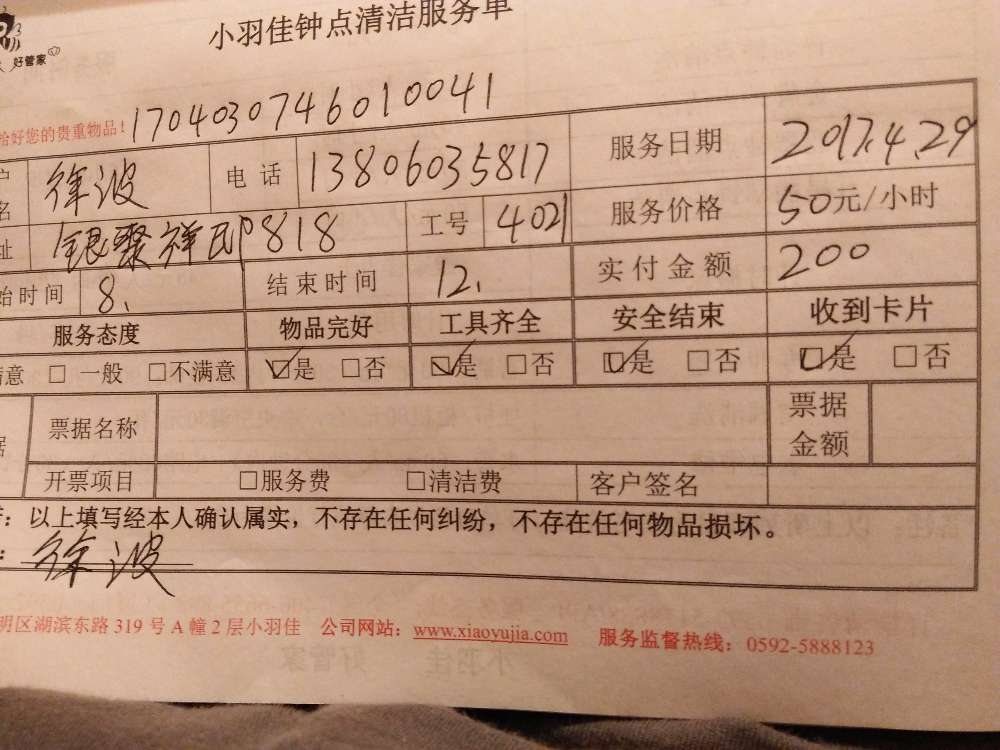 小羽佳钟点清洁服务单
好管家
给好您的贵重物品! 1704030746010041
户名 徐波 电话 13806035817 服务日期 2017.4.29
址 银聚祥邸818 工号 4021 服务价格 50元/小时
始时间 8. 结束时间 12. 实付金额 200
服务态度 物品完好 工具齐全 安全结束 收到卡片
满意 □ 一般 □不满意 ☑是 □否 ☑是 □否 ☑是 □否 ☑是 □否
据 票据名称 票据金额
开票项目 □服务费 □清洁费 客户签名
:以上填写经本人确认属实,不存在任何纠纷,不存在任何物品损坏。
: 徐波
明区湖滨东路 319 号 A 幢 2 层小羽佳 公司网站: www.xiaoyujia.com 服务监督热线: 0592-5888123